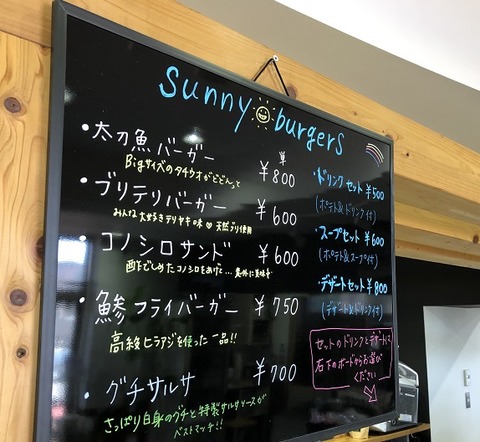 sunny burgers
単
・太刀魚バーガー ¥800
Bigサイズのタチウオがどどんっと
・ブリテリバーガー ¥600
みんな大好きテリヤキ味♡天然ブリ使用
・コノシロサンド ¥600
酢でしめたコノシロをあげた…意外に美味!!
・鯵フライバーガー ¥750
高級ヒラアジを使った一品!!
・グチサルサ ¥700
さっぱり白身のグチと特製サルサソースが
ベストマッチ!!
・ドリンクセット ¥500
(ポテト&ドリンク付)
・スープセット ¥600
(ポテト&スープ付)
・デザートセット ¥800
(デザート&ドリンク付)
セットのドリンクとデザートは
右下のボードからお選び
ください